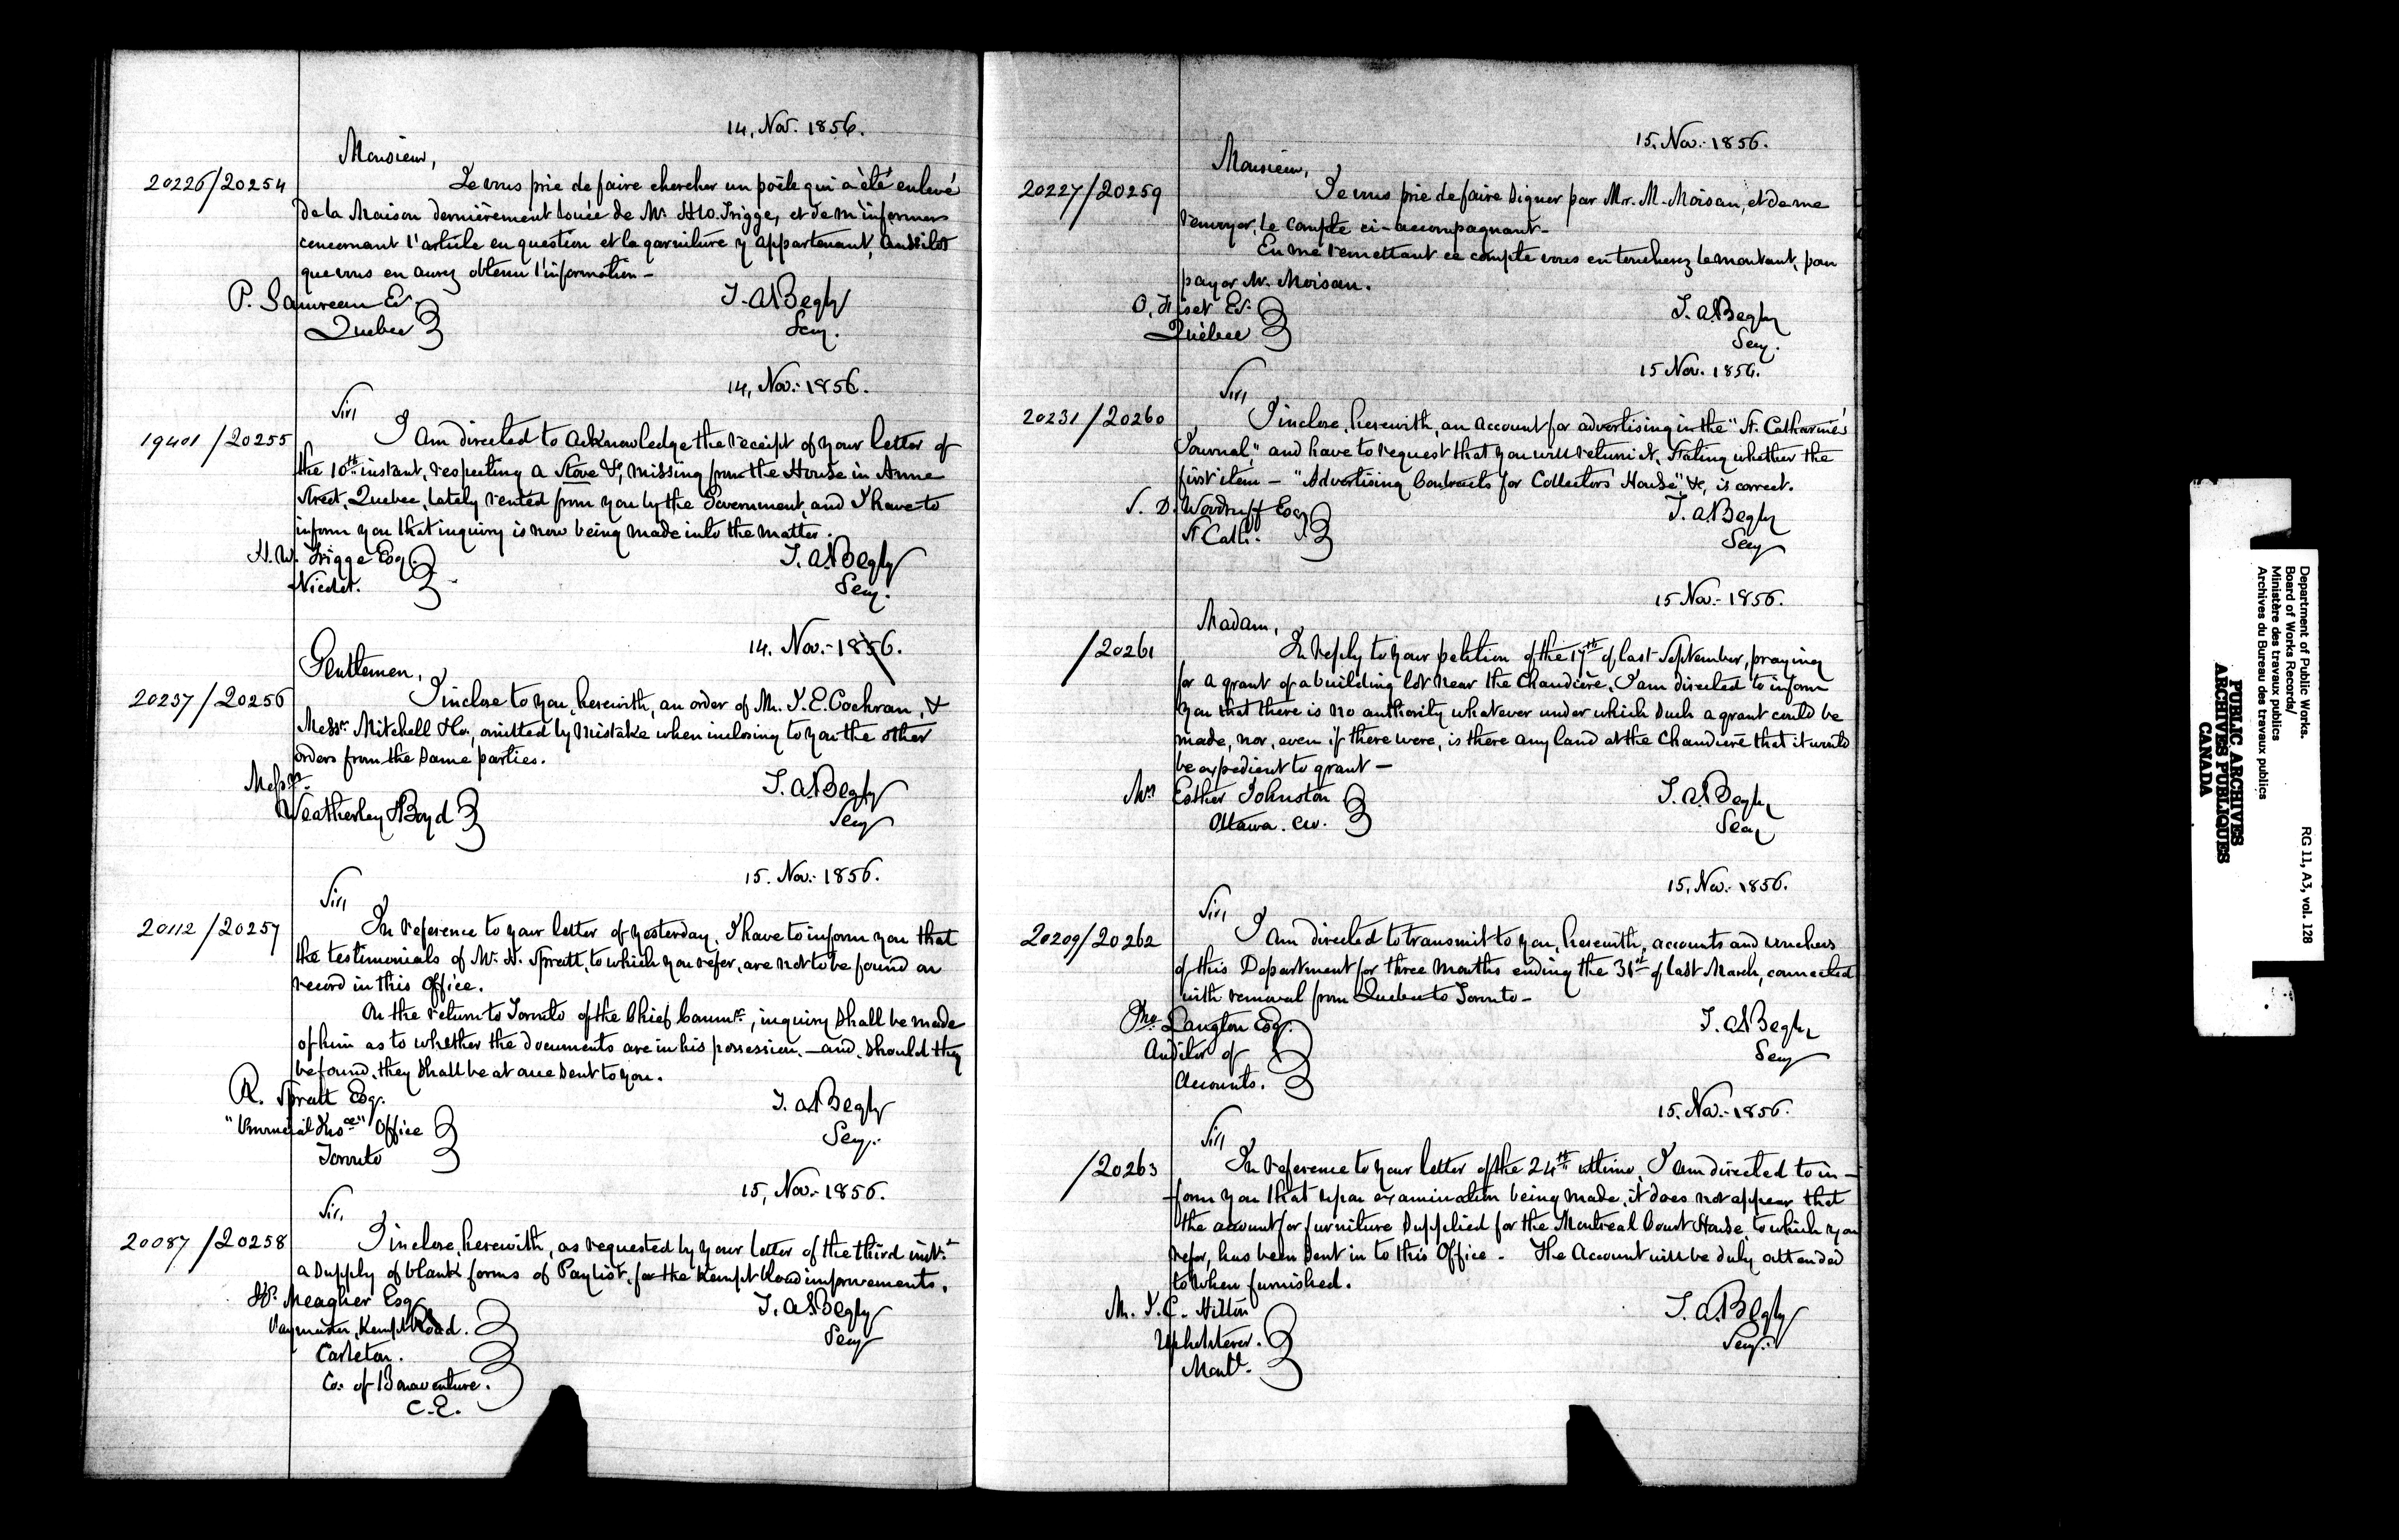 14, Nov. 1856.
Monsieur,
20226/20254
Je vous prie de faire chercher un poêle qui a été enlevé
de la Maison dernièrement louée de Mr. H.W. Trigge, et de m'informer
concernant l'article en question et la garniture y appartenant, aussitôt
que vous en aurez obtenu l'information -
P. Gauvreau Er.
Quebec
T. A. Begly
Secy.
14, Nov. 1856.
Sir,
19401/20255
I am directed to acknowledge the receipt of your letter of
the 10th instant, respecting a Stove &c, missing from the House in Anne
Street, Quebec, lately rented from you by the Government, and I have to
inform you that inquiry is now being made into the matter.
H. W. Trigge Esq.
Nicolet.
T. A. Begly
Secy.
14. Nov. 1856.
Gentlemen,
20237/20256
I inclose to you, herewith, an order of Mr. J. E. Cochran, &
Messrs. Mitchell & Co., omitted by mistake when inclosing to you the other
orders from the same parties.
Messrs.
Weatherley & Boyd
T. A. Begly
Secy
15. Nov. 1856.
Sir,
20112/20257
In reference to your letter of yesterday, I have to inform you that
the testimonials of Mr. H. Spratt, to which you refer, are not to be found on
record in this Office.
On the return to Toronto of the Chief Commr., inquiry shall be made
of him as to whether the documents are in his possession, - and, should they
be found, they shall be at once sent to you.
R. Spratt Esq.
"Provincial Insce" Office
Toronto
T. A. Begly
Secy.
15, Nov. 1856.
Sir,
20087/20258
I inclose, herewith, as requested by your letter of the third inst.
a supply of blank forms of Paylist, for the Kempt Road improvements.
Meagher Esq
Paymaster, Kempt Road.
Carleton.
Co. of Bonaventure.
C.E.
T. A. Begly
Secy
15, Nov. 1856.
Monsieur,
20227/20259
Je vous prie de faire signer par Mr. M. Moisan, et de me
renvoyer, le compte ci-accompagnant -
En me remettant ce compte vous en toucherez le montant, pour
payer Mr. Moisan.
O. Fiset Er.
Québec
T. A. Begly
Secy.
15 Nov. 1856.
Sir,
20231/20260
I inclose, herewith, an account for advertising in the "St. Catharine's
Journal," and have to request that you will return it, stating whether the
first item - "Advertising Contracts for Collectors' House", &c, is correct.
S. D. Woodruff Esq
St Cath.
T. A. Begly
Secy
15 Nov. 1856.
Madam,
/20261
In reply to your petition of the 17th of last September, praying
for a grant of a building lot near the Chaudiere, I am directed to inform
you that there is no authority whatever under which such a grant could be
made, nor, even if there were, is there any land at the Chaudiere that it would
be expedient to grant -
Mrs Esther Johnston
Ottawa. C.W.
T. A. Begly
Secy
15, Nov. 1856.
Sir,
20209/20262
I am directed to transmit to you, herewith, accounts and vouchers
of this Department for three months ending the 31st of last March, connected
with removal from Quebec to Toronto -
Jno. Langton Esq.
Auditor of
Accounts.
T. A. Begly
Secy
15, Nov. 1856.
Sir,
/20263
In reference to your letter of the 24th ultimo, I am directed to in-
form you that upon examination being made, it does not appear that
the account for furniture supplied for the Montreal Court House, to which you
refer, has been sent in to this Office - The Account will be duly attended
to when furnished.
Mr. J. C. Hilton
Upholsterer.
Montl.
T. A. Begly
Secy.
Department of Public Works.
Board of Works Records/
Ministère des travaux publics
Archives du Bureau des travaux publics
RG 11, A3, vol. 128
PUBLIC ARCHIVES
ARCHIVES PUBLIQUES
CANADA